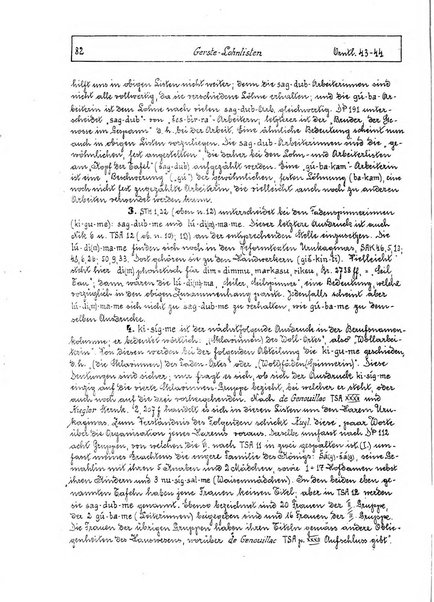 82 Gerste-Lohnlisten Orntl. 43-44
hilft uns in obigen Listen nicht weiter; denn die sag-dub-Arbeiterinnen sind
nicht alle vollwertig, da sie verschiedene Löhne erhalten; und die gú-ba-Ar-
beiterin ist dem Lohne nach vielen sag-dub Arb. gleichwertig. DP 191 unter-
scheidet "sag-dub" von "Arbeitern; letzterer ist der "Bruder, der Ge-
nosse im Gespann" d.h. bei der Arbeit. Eine ähnliche Bedeutung scheint nun
auch in obigen Listen vorzuliegen. Die sag-dub-Arbeiterinnen sind die "ge-
wöhnlichen, fest angestellten", die daher bei den Lohn- und Arbeiterlisten
am "Kopf der Tafel" (sag-dub) aufgezählt werden. Eine "gú-bam"-Arbeiterin
ist eine "Beschwerung" (gú) der gewöhnlichen, festen Löhnung (ba-kam), eine
noch nicht fest zugezählte Arbeiterin, die vielleicht auch noch zu anderen
Arbeiten verwendet werden kann.
3. STH 1,22 (oben n. 12) unterscheidet bei den Fadenspinnerinnen
(ki-gu-me): sag-dub-me und lú-di(m)-ma-me. Dieser letztere Ausdruck ist auch
Nik 6 u. TSA 12 (ob. n. 10; 12) an der entsprechenden Stelle einzusetzen. Die
lú-di(m)-ma-me finden sich noch in den Reformtexten Urukaginas, SAK 46, 5,13;
48, 6,26; 50, 9,33. Dort gehören sie zu den Handwerkern (giš-kin-ti). Vielleicht
steht hier di(m) phonetisch für dim = dimmu, markasu, riksu, Gr. 2738 ff. = "Seil,
Tau"; dann wären die lú-di(m)-ma, "Seiler, Seilspinner" eine Bedeutung, welche
vorzüglich in den obigen Zusammenhang passte. Jedenfalls scheint aber
lú-di(m)-ma-me sich nicht zu sag-dub zu verhalten, wie gú-ba-me zu dem-
selben Ausdrucke.
4. ki-sig-me ist der nächstfolgende Ausdruck in der Berufsnamen-
kolumne; er bedeutet wörtlich: "(Sklavinnen) des Woll-Ortes", also "Wollarbei-
terin". Von diesen werden bei der folgenden Abteilung die ki-gu-me geschieden,
d.h. "(die Sklavinnen) des Faden-Ortes" oder "(Wollfäden-)Spinnerin)". Diese
Deutungen sind sicher; nur fragt es sich, ob sich der Ausdruck ki-sig-me
einzig auf die vierte Sklavinnen-Gruppe bezieht, bei welcher er steht, oder
auch noch auf die drei vorhergehenden. Nach de Genouillac TSA XXXII und
Kugler Sternk. 2, 207 f handelt es sich in diesen Listen um den Harem Uru-
kaginas. Zum Verständnis des Folgenden schickt Zugl diese, paar Worte
über die Organisation jenes Harems voraus. Derselbe umfasst nach DP 112
acht Gruppen, von welchen die 9. nach TSA 11 von untergeordneter ist. (I) um-
fasst unsres Erachtens die engere Familie des Königs: Šá(g)-šá(g), seine Ge-
mahlin mit ihren 7 Knaben und 2 Mädchen, sowie 1-17 Hofdamen nebst
ihren Kindern und 3 nu-sig-sal-me (Waisenmädchen). In den beiden eben ge-
nannten Tafeln haben jene Frauen keinen Titel; aber in TSA 12 werden
sie sag-dub-me genannt. Ebenso bezeichnet sind 20 Frauen der II. Gruppe,
der 2 gú-ba-me (Leiterinnen) beigegeben sind und 16 Frauen der V. Gruppe.
Die Frauen der übrigen Gruppen haben ihren Titel gemäss andere Oblie-
genheiten des Hauswesens, worüber de Genouillac TSA p. XXXII Aufschluss gibt".